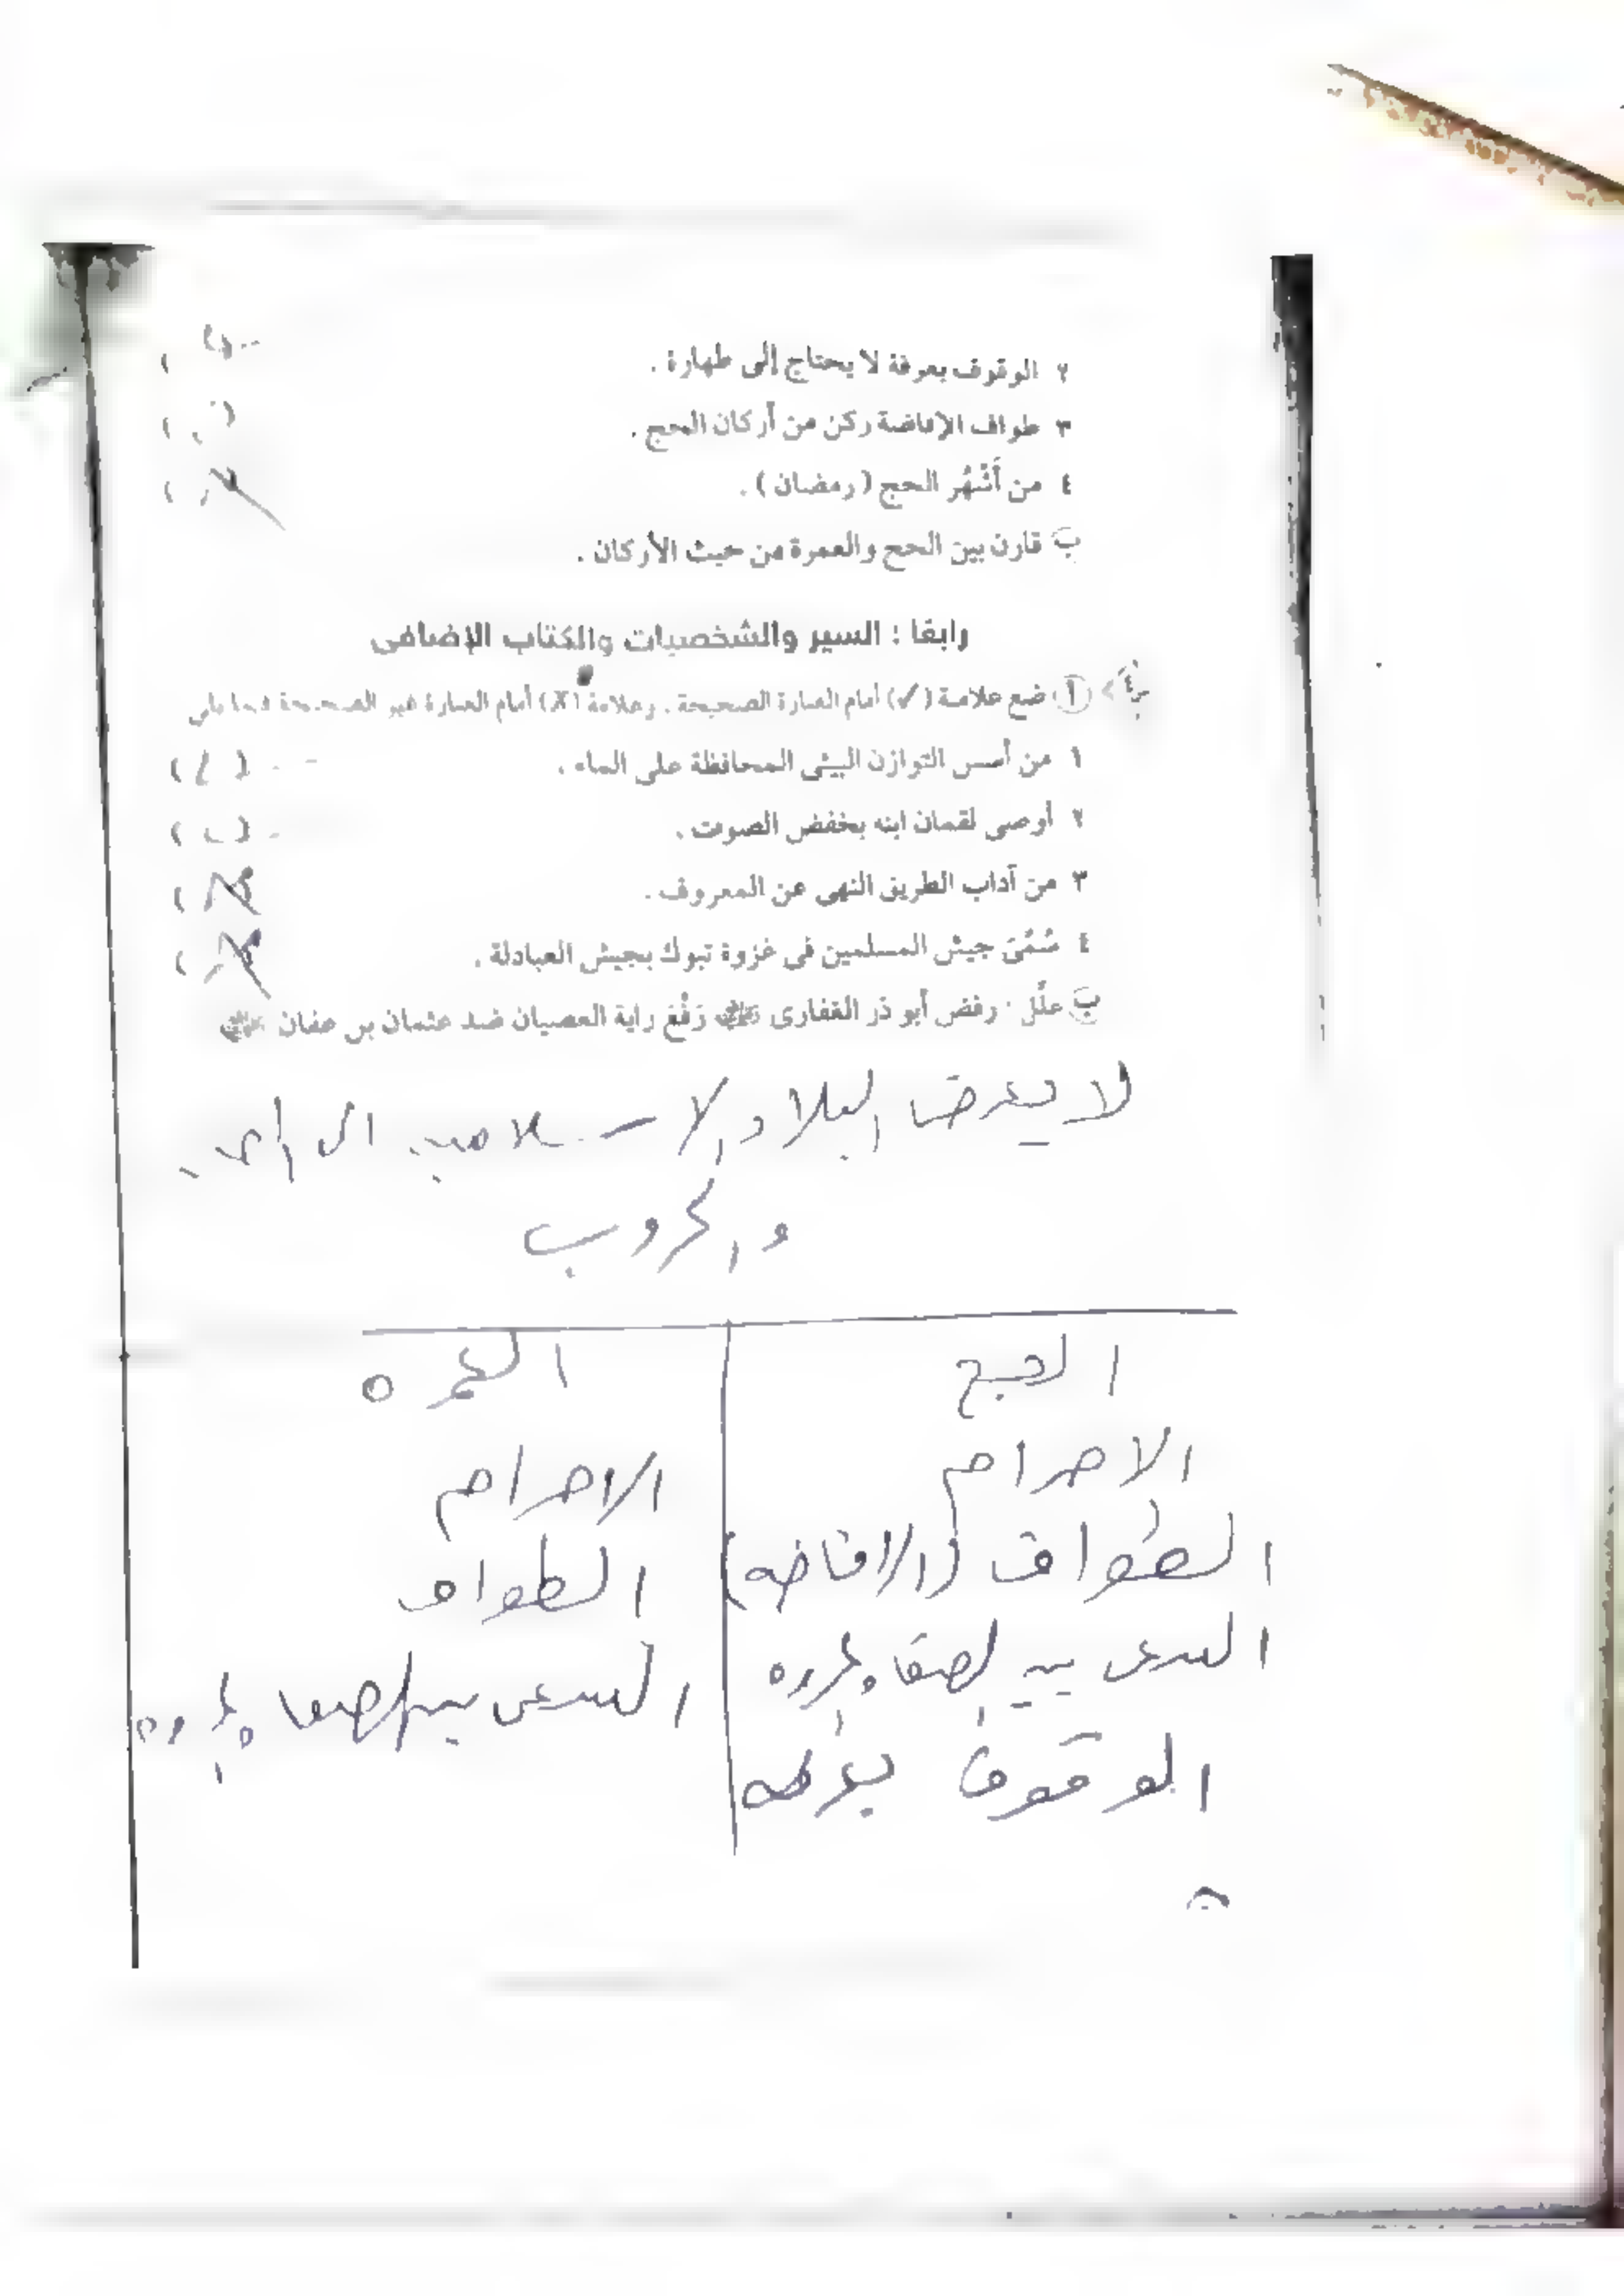 ٢ الوقوف بعرفة لا يحتاج إلى طهارة . ( )
٣ طواف الإفاضة ركن من أركان الحج . ( )
٤ من أَشْهُر الحج ( رمضان ) . ( )
ب قارن بين الحج والعمرة من حيث الأركان .
رابعًا : السير والشخصيات والكتاب الإضافى
أ ضع علامة ( ✓ ) أمام العبارة الصحيحة . وعلامة ( X ) أمام العبارة غير الصحيحة فيما يلى
١ من أسس التوازن البيئى المحافظة على الماء . ( / )
٢ أوصى لقمان ابنه بخفض الصوت . ( )
٣ من آداب الطريق النهى عن المعروف . ( X )
٤ سُمِّىَ جيش المسلمين فى غزوة تبوك بجيش العبادلة . ( X )
ب علِّل : رفض أبو ذر الغفارى رَفْعَ راية العصيان ضد عثمان بن عفان
لا يعرض البلاد الاسلاميه الى
والحروب
الحج العمره
الاحرام الاحرام
الطواف (الافاضه) الطواف
السعى بين الصفا والمروه السعى بين الصفا والمروه
الوقوف بعرفه